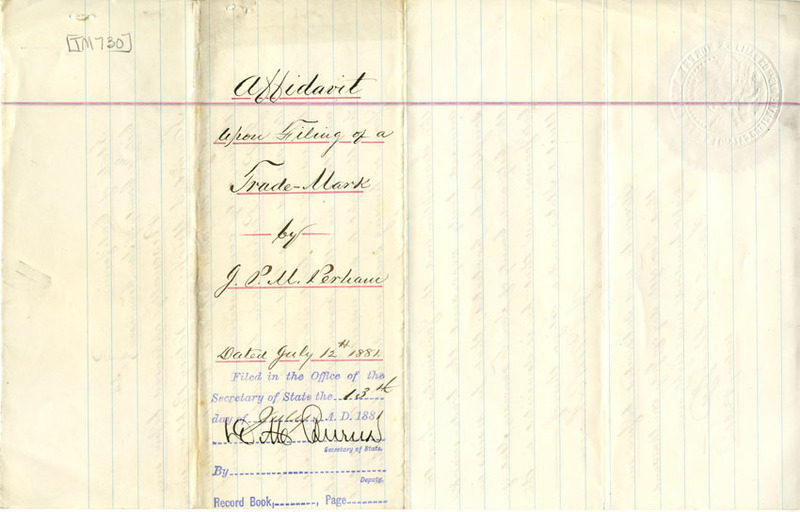 [TM730]
Affidavit
Upon Filing of a
Trade-Mark
by
J. P. M. Perham
Dated July 12th 1881
Filed in the Office of the
Secretary of State the 13th
day of July A. D. 1881
Burns
Secretary of State.
By
Deputy.
Record Book, , Page